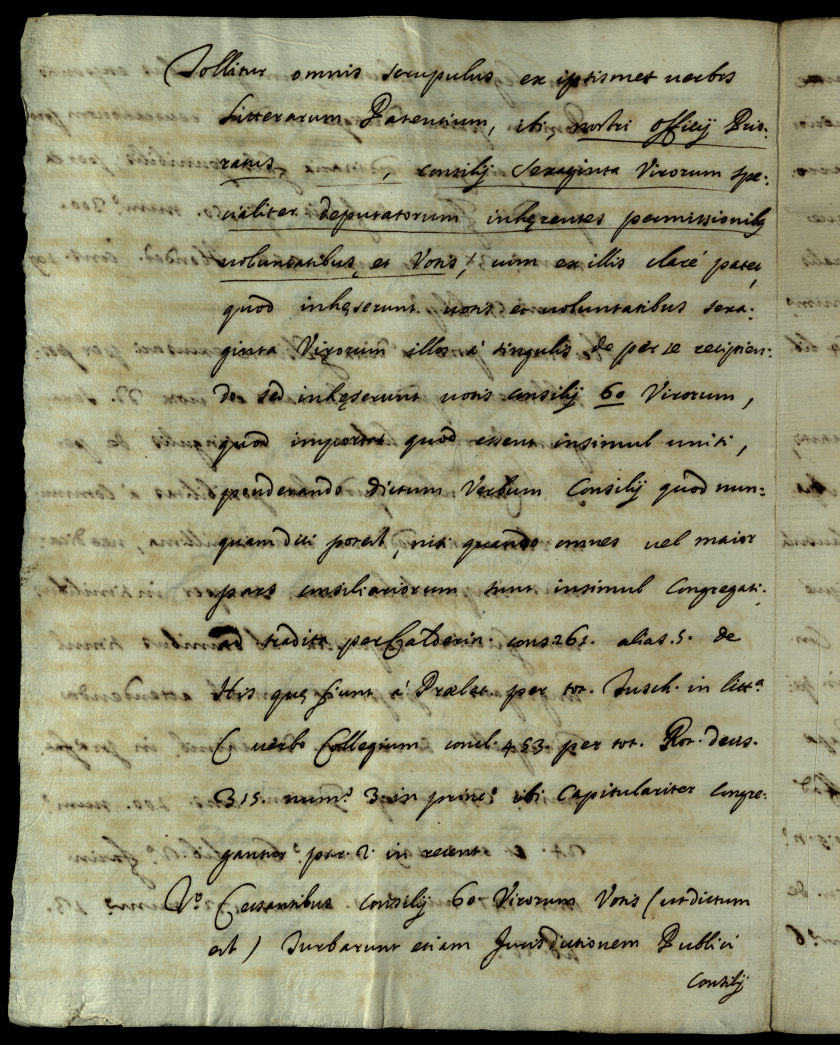 Tollitur omnis scrupulus ex ipsismet uerbis
Litterarum Patentium, ibi, nostri officij Prio:
ratus, , consilij sexaginta Virorum spe:
cialiter deputatorum inhęrentes permissionibus
uoluntatibus, et Votis, cum ex illis claré patet,
quod inhęserunt uotis et uoluntatibus sexa:
ginta Virorum illos á singulis de per se recipien:
do sed inhęserunt uotis consilij 60 Virorum,
quod importat quod essent insimul uniti,
ponderando dictum Verbum Consilij quod nun:
quam dici potest, nisi quando omnes uel maior
pars consiliariorum sunt insimul Congregati.
tradita per Calderin. cons 261. alias. 5. de
His quę fiunt á Prælat. per tot. Tusch. in litt.a
C uerbo Collegium concl. 453. per tot. Rot. decis.
315. num.o 3. in princ.o ibi Capitulariter Congre:
gantur par. 2. in recent.
V.o Cessantibus Consilij 60 Virorum Votis (ut dictum
est) Turbarunt etiam Jurisdictionem Publici
Consilij